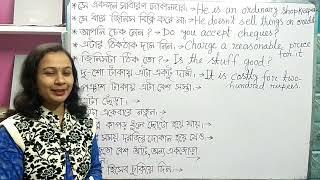 * সে একজন সাধারণ দোকানদার। → He is an ordinary shopkeeper
* সে বাকি জিনিস বিক্রি করে না। → He doesn't sell things on credit
* আপনি চেক নেন ? → Do you accept cheques?
* এটার ঠিকঠাক দাম নিন। → Charge a reasonable price for it.
* জিনিসটা ঠিক তো ? → Is the stuff good?
* দু-শো টাকায় এটা একটু দামী। → It is costly for two-hundred rupees.
টাকায় এটা বেশ সস্তা।
টা ছেঁড়া।
টা একেবারে নতুন।
র কাপড় ধুলে ছোটো হয়ে যায়।
সময় দরজির দোকান হয়ে যেও
জুতো বেশ আঁট, অন্য একজোড়া
হিসেব চুকিয়ে দিন।